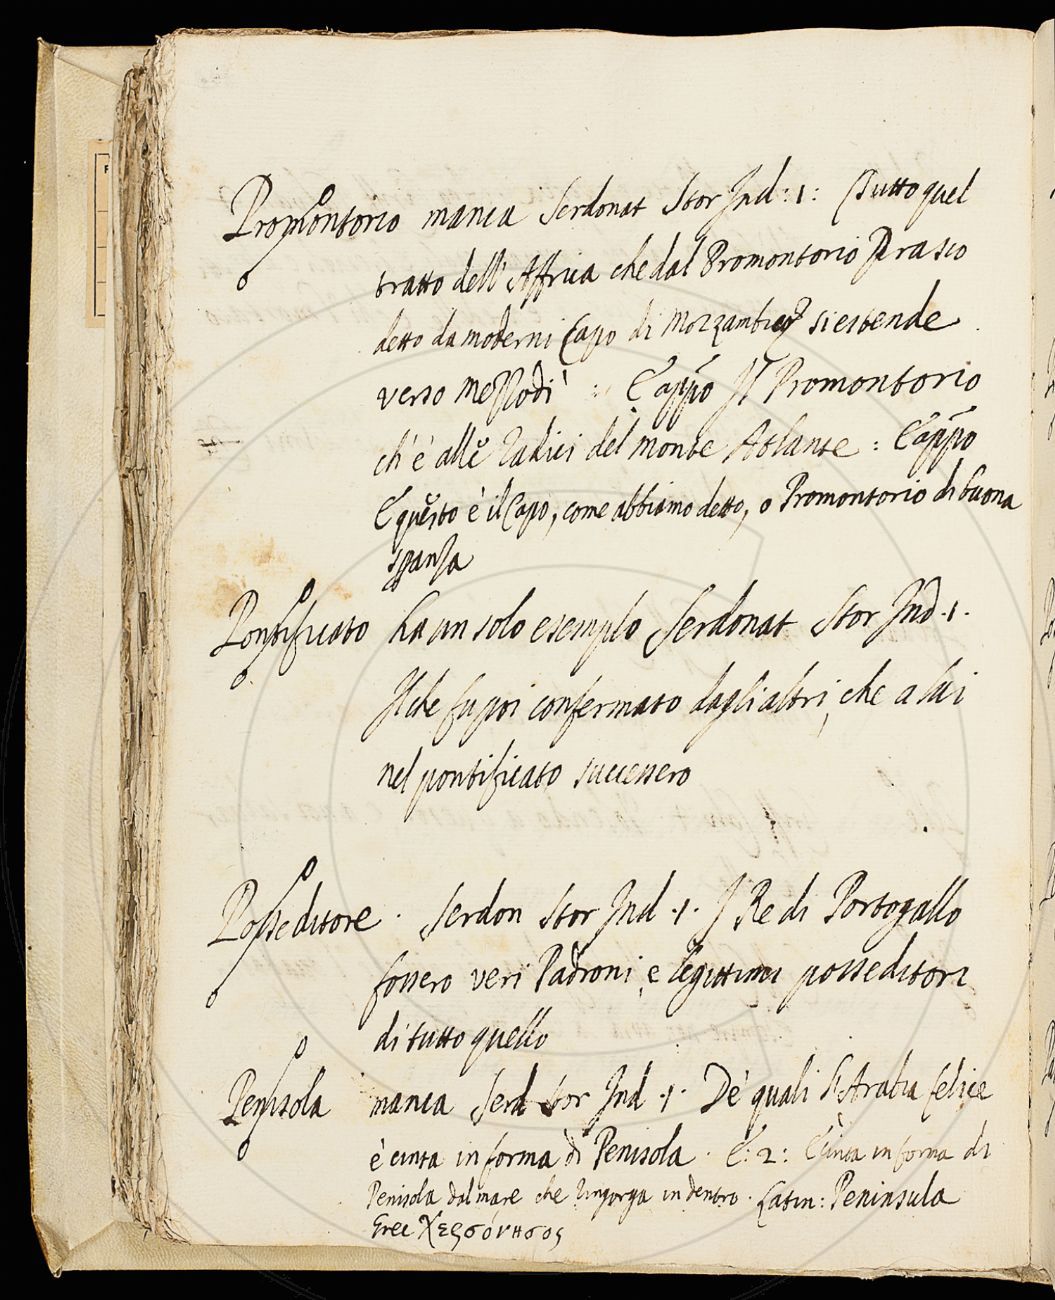 Promontorio manca Serdonat Stor Ind: 1: Tutto quel
tratto dell'Affrica che dal Promontorio Prasso
detto da moderni Capo di Mozzambicq si estende
verso Mezzodì : E appo Il Promontorio
ch'è alle radici del monte Atlante : E appo
E questo è il Capo, come abbiamo detto, o Promontorio di buona
spanza
Pontificato ha un solo esemplo Serdonat Stor Ind. 1.
Il che fu poi confermato dagli altri, che a lui
nel pontificato successero
Posseditore . Serdon Stor Ind. 1. I Re di Portogallo
fossero veri Padroni, e legittimi posseditori
di tutto quello
Penisola manca Serd Stor Ind. 1. De quali l'Arabia felice
è cinta in forma di Penisola . E: 2: Cinta in forma di
Penisola dal mare che ringorga in dentro. Latin: Peninsula
Grec Χερσόνησος